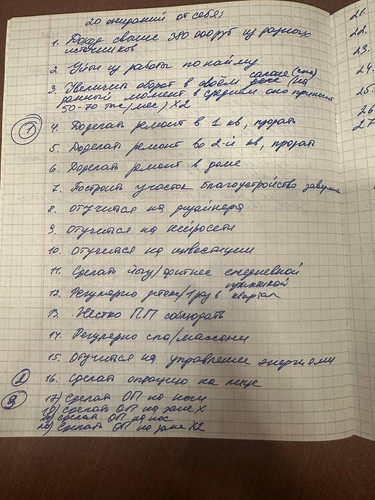 20 ожиданий от себя:
1. Доход свыше 380 000 руб из разного
источников
2. Уйти из работы по найму
3. Увеличить оборот в своём салоне (спа)
данный момент в среднем оно приносит
50-70 тыс/мес) X2
1 4. Доделать ремонт в 1 кв, продать
5. Доделать ремонт во 2-й кв, продать
6. Доделать ремонт в доме
7. Построить участок благоустройство
8. Отучиться на дизайнера
9. Отучиться на нейросети
10. Отучиться на инвестиции
11. Сделать йогу/фитнес ежедневной
практикой
12. Регулярно /1 раз в квартал
13. Жестко ПП соблюдать
14. Регулярно спа/массажи
15. Отучиться на управление энергиями
2 16. Сделать операцию на лице
3 17) Сделать ОП на ноги
18) Сделать ОП на зоне X
19) Сделать ОП на нос
20) Сделать ОП на зоне X2
21.
22.
23.
24.
25.
26
27